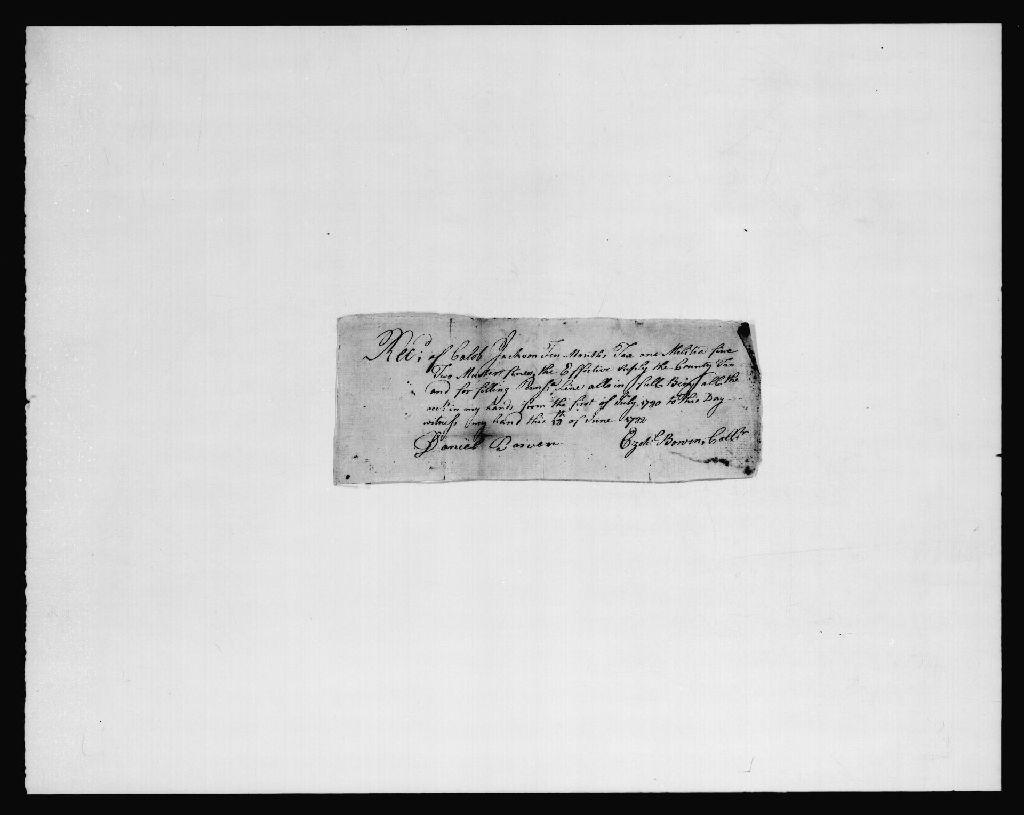 Rec.d of Caleb Jackson Ten Months Tax one Militia fine
Two Muster fines, the Effective Supply the County Tax
and for filling Line all in full Being all the
in my hands from the first of July 1780 to this Day
witness my hand this 18th of June 1782
Daniel Bowen Ezek.l Bowen, Coll.r